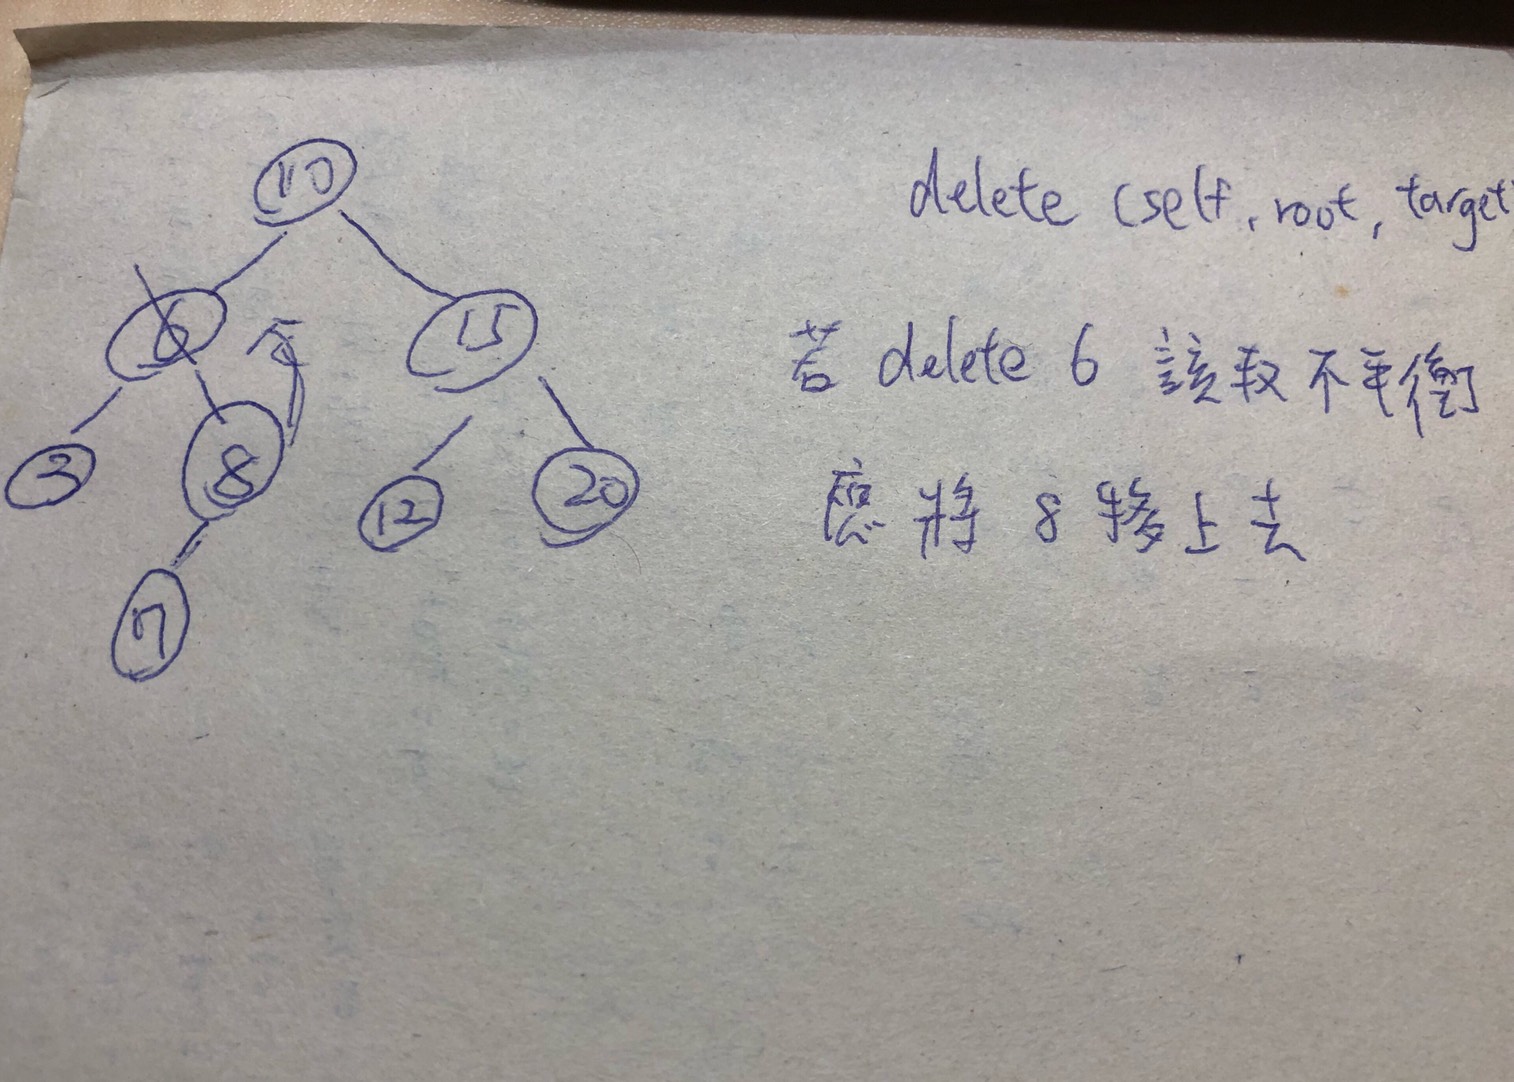 10
6
15
3
8
12
20
7
delete (self, root, target
若 delete 6 該取不平衡
應將 8 移上去